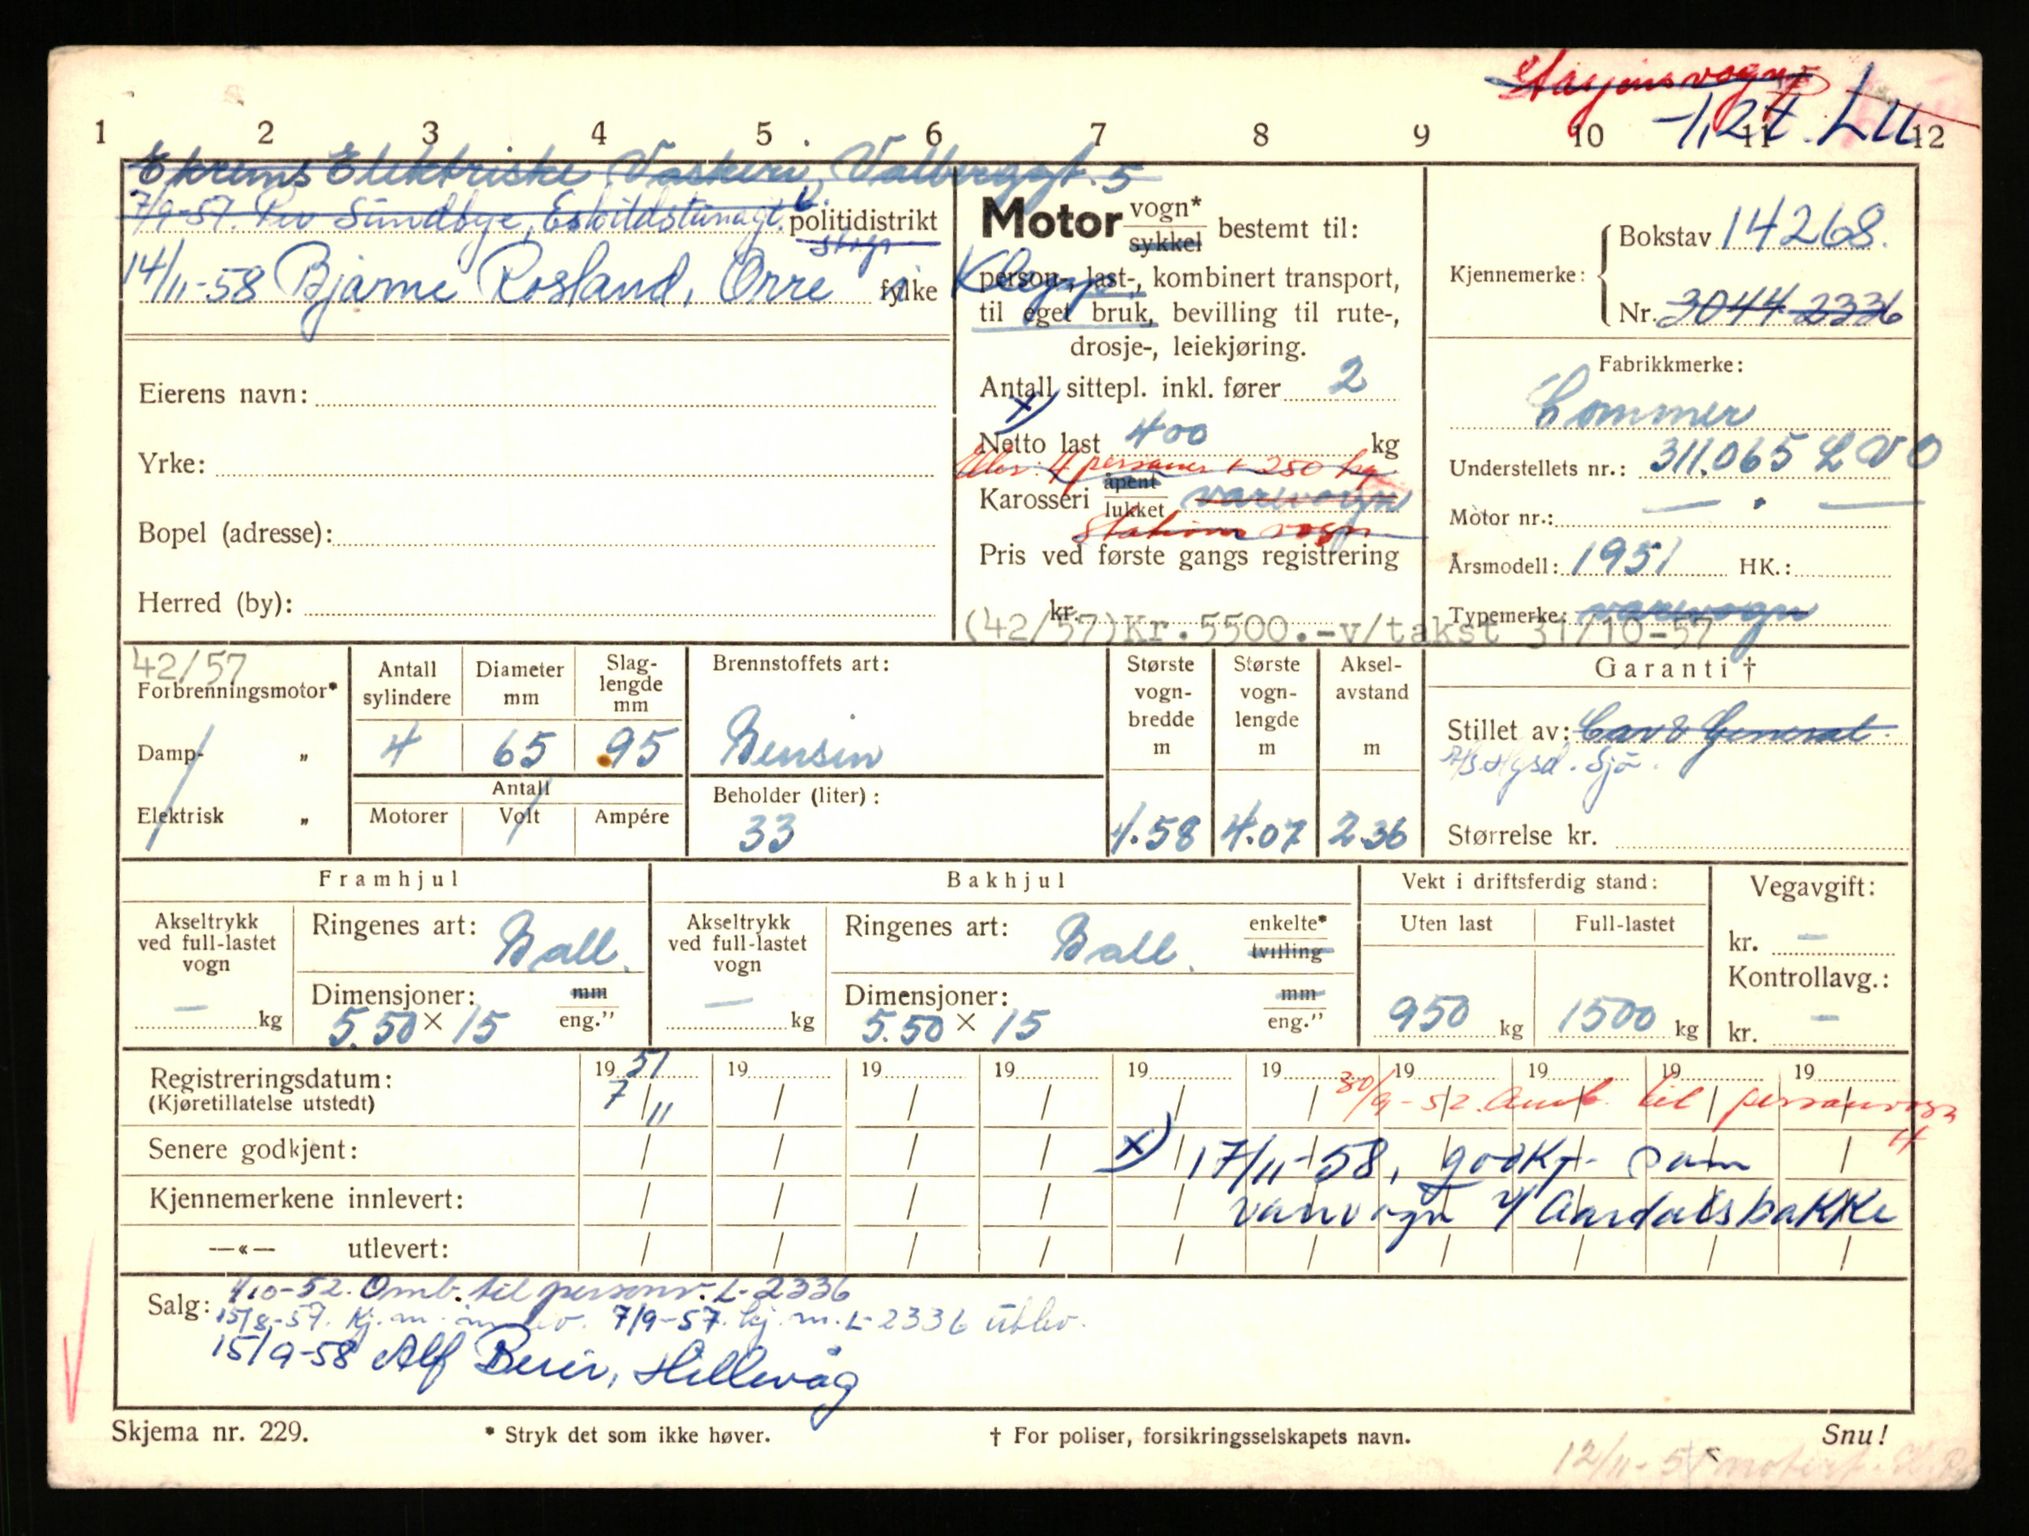 Stasjonsvogn
-1,2t. LU
1 2 3 4 5 6 7 8 9 10 11 12
Ekrems Elektriske Vaskeri, Valberggt. 5
7/9-57. Per Sundbye, Eskildstunagt. 6 politidistrikt
Stvgr
14/11-58 Bjarne Rosland, Orre i Klepp fylke
Eierens navn:
Yrke:
Bopel (adresse):
Herred (by):
Motor vogn* sykkel bestemt til:
person-, last-, kombinert transport,
til eget bruk, bevilling til rute-,
drosje-, leiekjøring.
Antall sittepl. inkl. fører 2
x)
Netto last 400 kg
eller 4 personer + 250 kg
Karosseri åpent lukket varevogn
Stasjonsvogn
Pris ved første gangs registrering
kr.
(42/57)Kr.5500.-v/takst 31/10-57
Kjennemerke: Bokstav 14268.
Nr. 3044 2336
Fabrikkmerke:
Commer
Understellets nr.: 311.065 L V O
Motor nr.: — " —
Årsmodell: 1951 HK.:
Typemerke: varevogn
42/57
Forbrenningsmotor*
Damp- „
Elektrisk „
Antall sylindere Diameter mm Slag-lengde mm
4 65 95
Antall
Motorer Volt Ampére
Brennstoffets art:
Bensin
Beholder (liter):
33
Største vogn-bredde m Største vogn-lengde m Aksel-avstand m
1.58 4.07 2.36
Garanti †
Stillet av: Car & General
Størrelse kr.
Framhjul Bakhjul Vekt i driftsferdig stand: Vegavgift:
Akseltrykk ved full-lastet vogn — kg
Ringenes art: Ball.
Dimensjoner: mm eng."
5.50 × 15
Akseltrykk ved full-lastet vogn — kg
Ringenes art: Ball. enkelte* tvilling
Dimensjoner: mm eng."
5.50 × 15
Uten last Full-lastet
950 kg 1500 kg
kr. —
Kontrollavg.:
kr. —
Registreringsdatum: 1951 19 19 19 19 19 19 19 19 19
(Kjøretillatelse utstedt) 7/11 30/9-52. Omb. til personvogn
Senere godkjent: x) 17/11-58, godkj. som
Kjennemerkene innlevert: varevogn v/ Aardalsbakke
—«— utlevert:
Salg: 1/10-52. Omb. til personv. L-2336
15/8-57. Kj.m. innlev. 7/9-57. kj.m. L-2336 utlev.
15/9-58 Alf Beier, Hillevåg
Skjema nr. 229. * Stryk det som ikke høver. † For poliser, forsikringsselskapets navn. Snu!